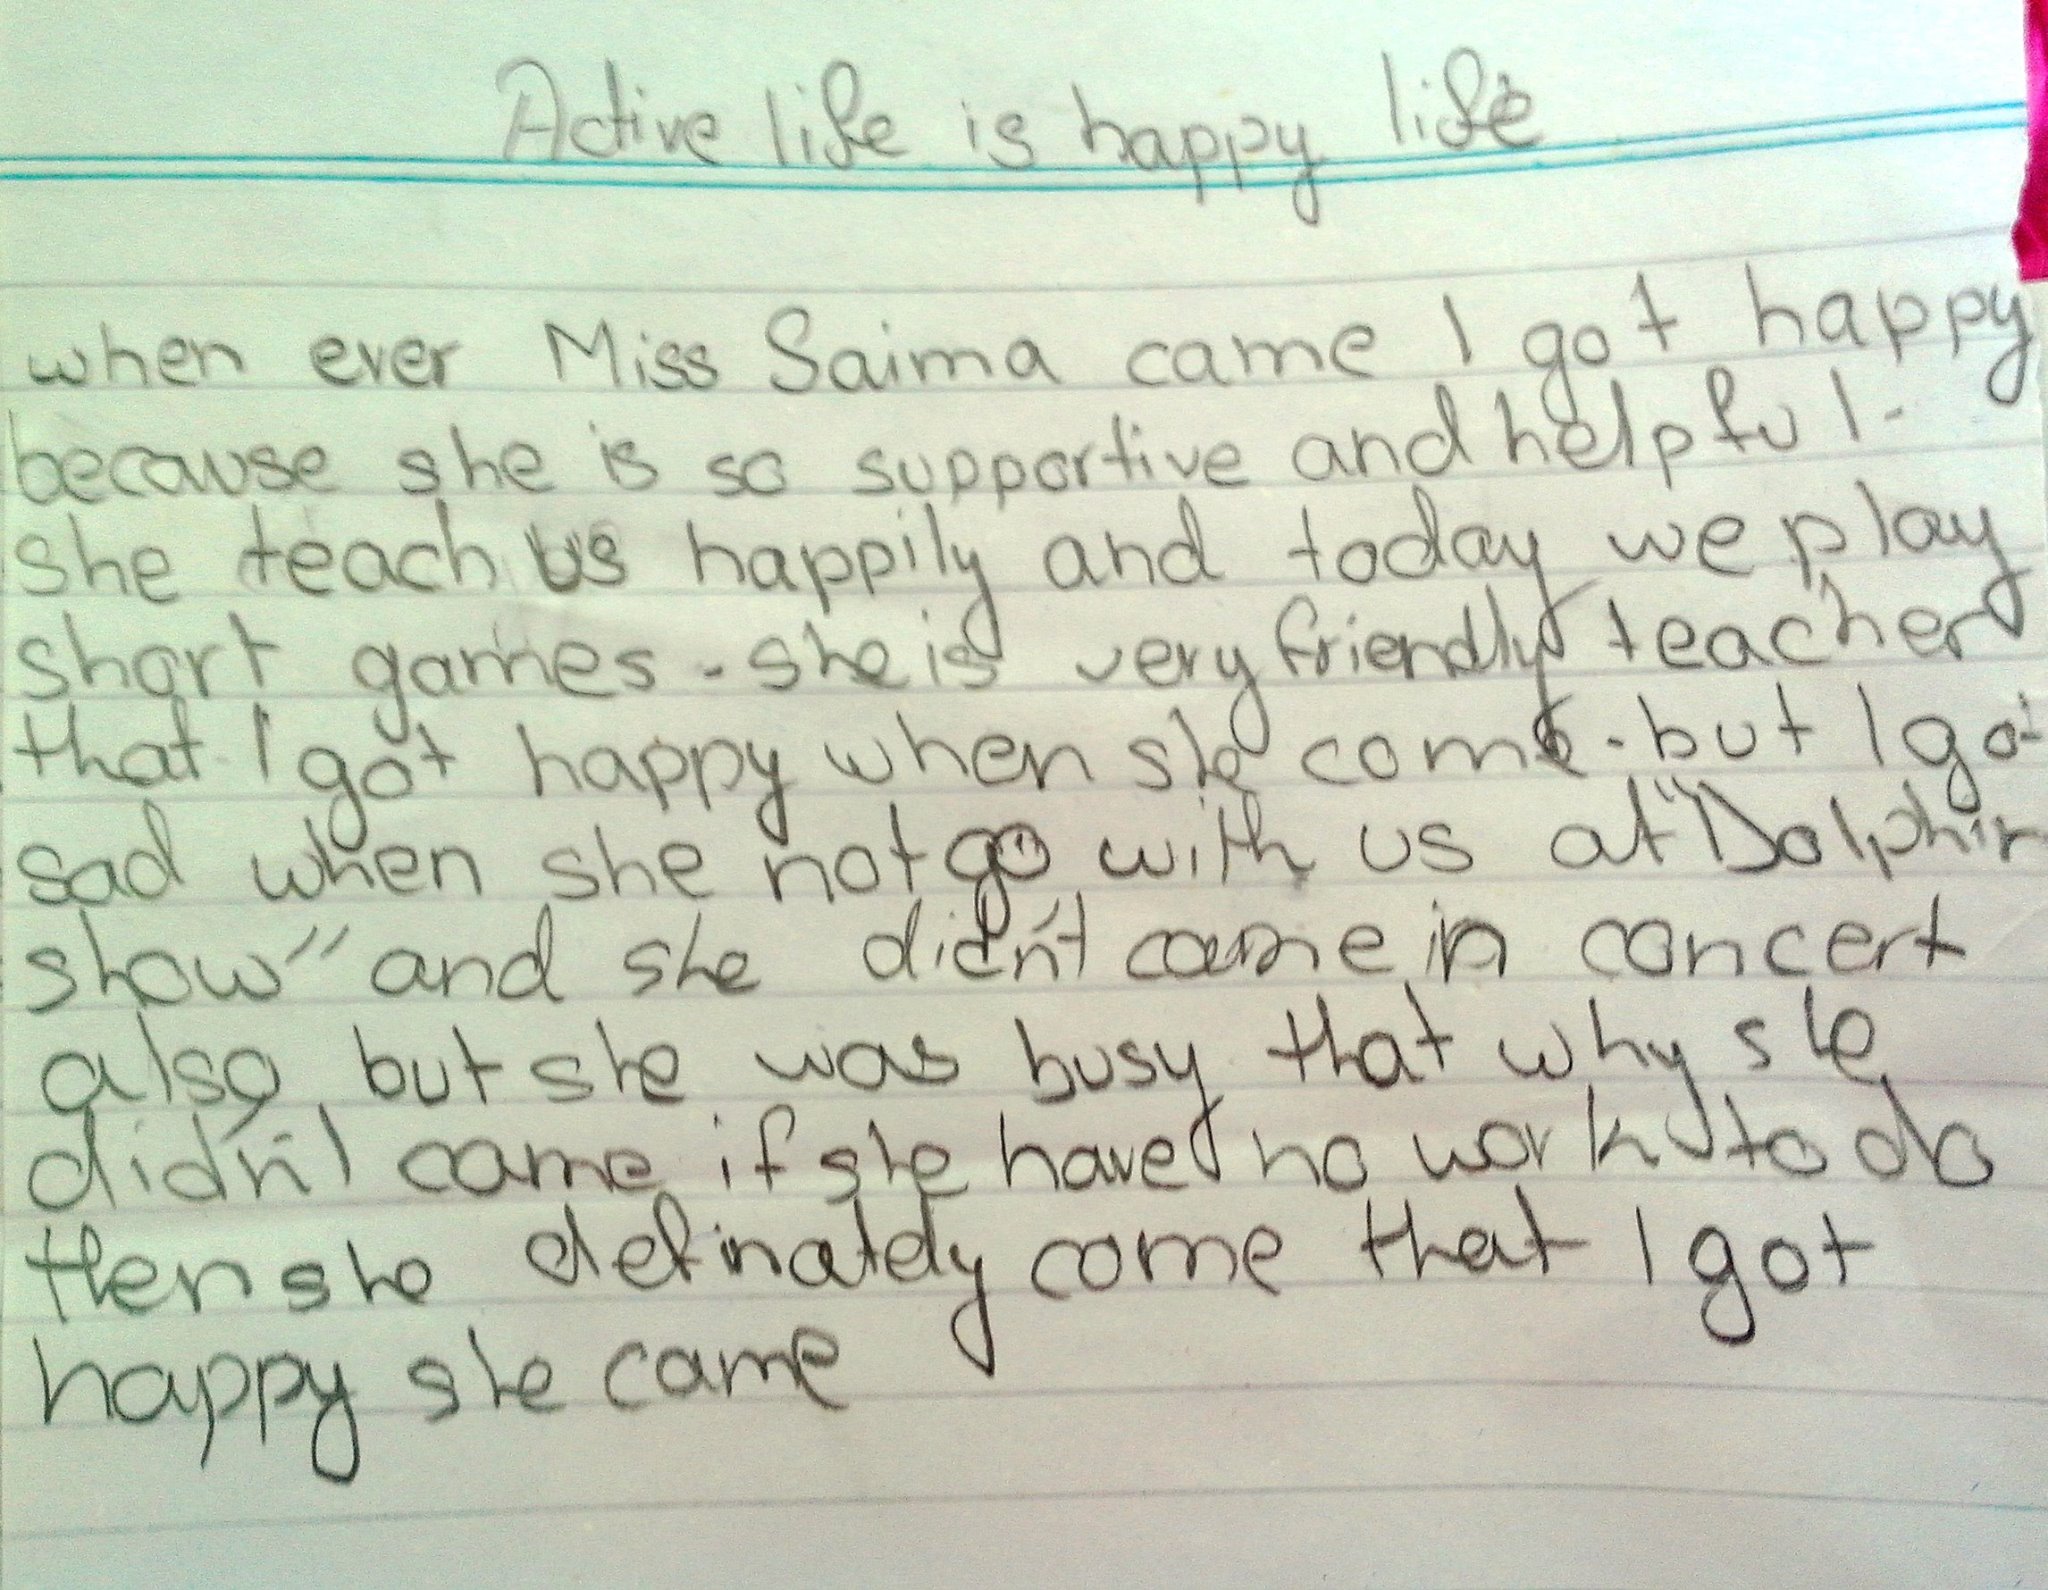 Active life is happy life
when ever Miss Saima came I got happy
because she is so supportive and helpful.
she teach us happily and today we play
short games. she is very friendly teacher
that I got happy when she come. but I got
sad when she not go with us at "Dolphin
show" and she didn't came in concert
also, but she was busy that why she
didn't came if she have no work to do
then she definately come that I got
happy she came